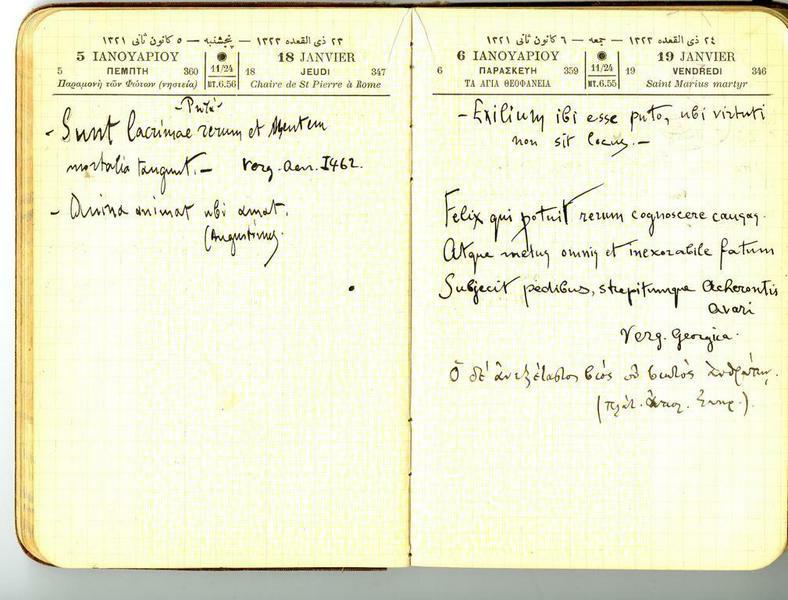 ٢٣ ذی القعده ١٣٢٣ — پنجشنبه — ٥ كانون ثانی ١٣٢١
5 ΙΑΝΟΥΑΡΙΟΥ 18 JANVIER
5 ΠΕΜΠΤΗ 360 11/24 18 JEUDI 347
Παραμονὴ τῶν Φώτων (νηστεία) ΜΤ.6.56 Chaire de St Pierre à Rome
- Sunt lacrimae rerum et Mentem
mortalia tangunt. — Verg. Aen. I 462.
- Anima animat ubi amat.
(Augustinus.
٢٤ ذی القعده ١٣٢٣ — جمعه — ٦ كانون ثانی ١٣٢١
6 ΙΑΝΟΥΑΡΙΟΥ 19 JANVIER
6 ΠΑΡΑΣΚΕΥΗ 359 11/24 19 VENDREDI 346
ΤΑ ΑΓΙΑ ΘΕΟΦΑΝΕΙΑ ΜΤ.6.55 Saint Marius martyr
- Exilium ibi esse puto, ubi virtuti
non sit locus. —
Felix qui potuit rerum cognoscere causas.
Atque metus omnis et inexorabile fatum
Subjecit pedibus, strepitumque Acherontis
avari
Verg. Georgica.
Ὁ δὲ ἀνεξέταστος βίος οὐ βιωτὸς ἀνθρώπῳ.